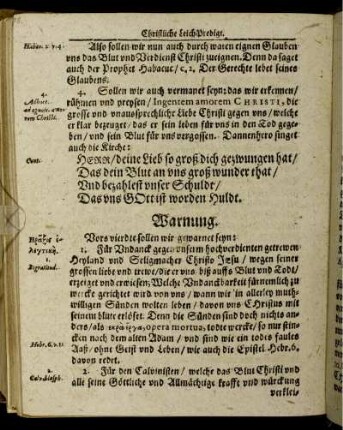 Christliche Leich-Predigt.
Habac. 2. v. 4.
Also sollen wir nun auch durch waren eignen Glauben
vns das Blut vnd Verdienst Christi zueignen. Denn da saget
auch der Prophet Habacuc / c. 2. Der Gerechte lebet seines
Glaubens.
4.
4. Sollen wir auch vermanet seyn: das wir erkennen /
rühmen vnd preysen / Ingentem amorem CHRISTI, die
grosse vnd vnaussprachliche Liebe Christi gegen vns / welche
er klar bezeuget / das er sein leben für vns in den Tod gege-
ben / vnd sein Blut für vns vergossen. Dannenhero singet
auch die Kirche:
Cant.
HERR / deine Lieb so groß dich gezwungen hat /
Das dein Blut an vns groß wunder that /
Vnd bezahlest vnser Schuldt /
Das vns GOtt ist worden Huldt.
Warnung.
Vors vierdte sollen wir gewarnet seyn:
1.
1. Für Vndanck gegen vnsern hochverdienten getrewen
Heyland vnd Seligmacher Christo Jesu / wegen seiner
grossen liebe vnd trewe / die er vns biß auffs Blut vnd Todt /
erzeiget vnd erwiesen: Welche Vndanckbarkeit fürnemlich zu
wercke gerichtet wird von vns / wann wir in allerley muth-
willigen Sünden wolten leben / davon vns Christus mit
seinem blute erlöset. Denn die Sünden sind doch nichts an-
ders / als νεκρὰ ἔργα, opera mortua, todte wercke / so nur stin-
cken nach dem alten Adam / vnd sind wie ein todes faules
Aaß / ohne Geist vnd Leben / wie auch die Epistel. Hebr. 6.
Hebr. 6. v. 1.
davon redet.
2.
2. Für den Calvinisten / welche das Blut Christi vnd
alle seine Göttliche vnd Allmächtige krafft vnd würckung
verklei-